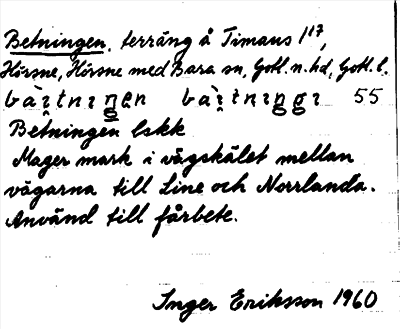 Betningen, terräng å Timans 1¹⁷,
Hörsne, Hörsne med Bara sn, Gotl. n. hd, Gotl. l.
bàı̣tnıŋen bàı̣tnıŋgı 55
Betningen lskk
Mager mark i vägskälet mellan
vägarna till Line och Norrlanda.
Använd till fårbete.
Inger Eriksson 1960